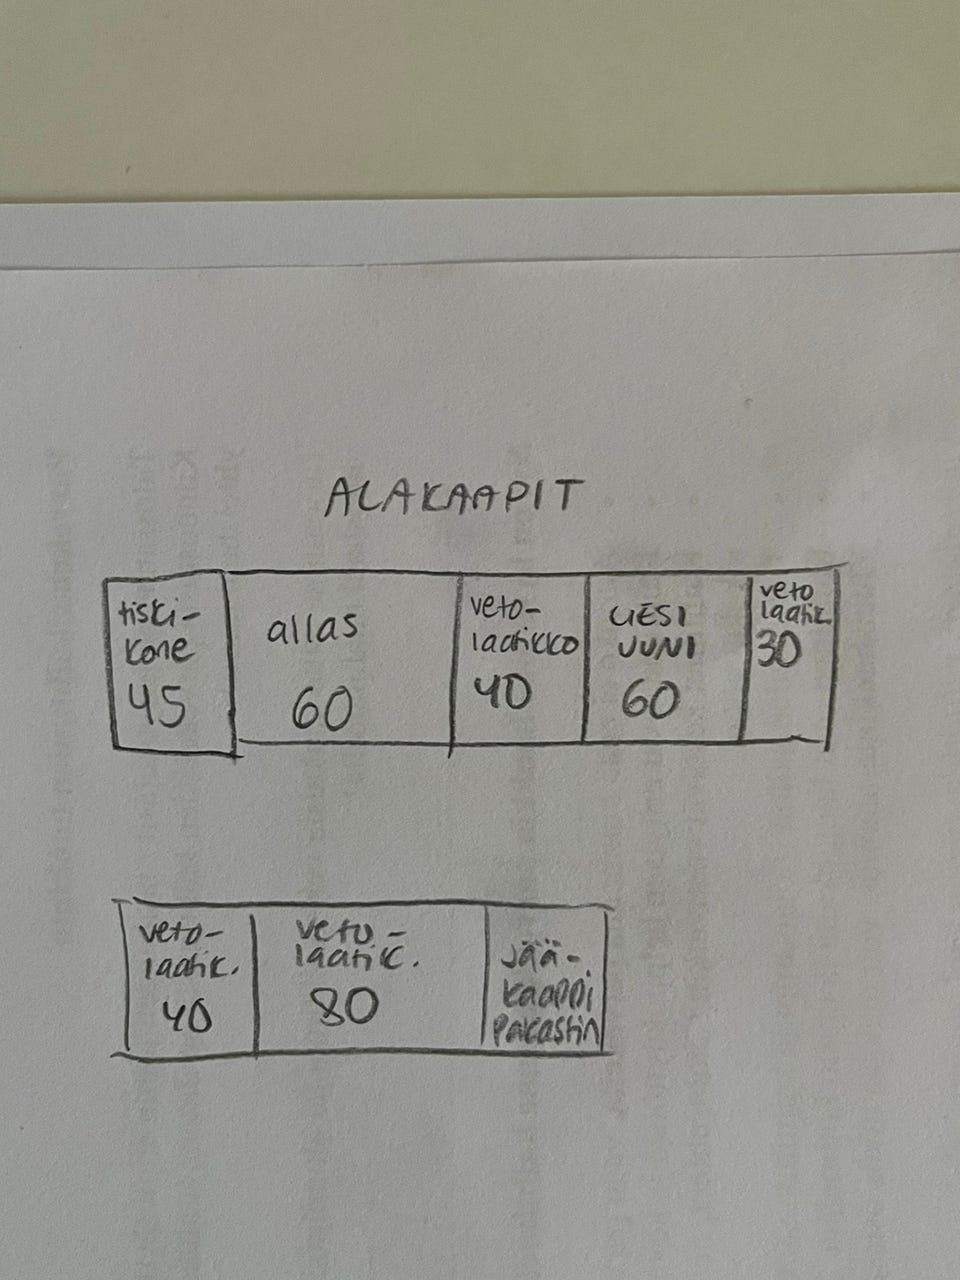 ALAKAAPIT
tiski-
kone
45
allas
60
veto-
laatikko
40
LIESI
UUNI
60
veto
laatik.
30
veto-
laatik.
40
veto-
laatik.
80
Jää-
kaappi
pakastin